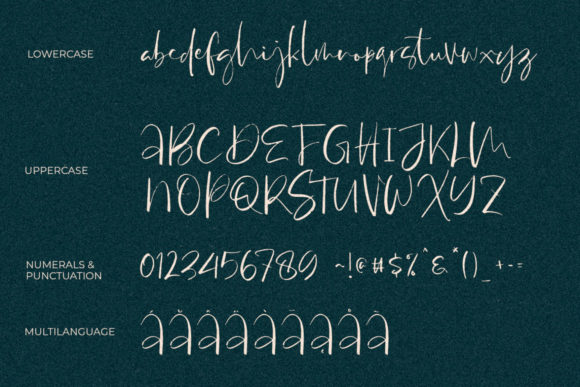 LOWERCASE
abcdefghijklmnopqrstuvwxyz
UPPERCASE
ABCDEFGHIJKLM
NOPQRSTUVWXYZ
NUMERALS &
PUNCTUATION
0123456789 ~!@#$%^&*()_+-=
MULTILANGUAGE